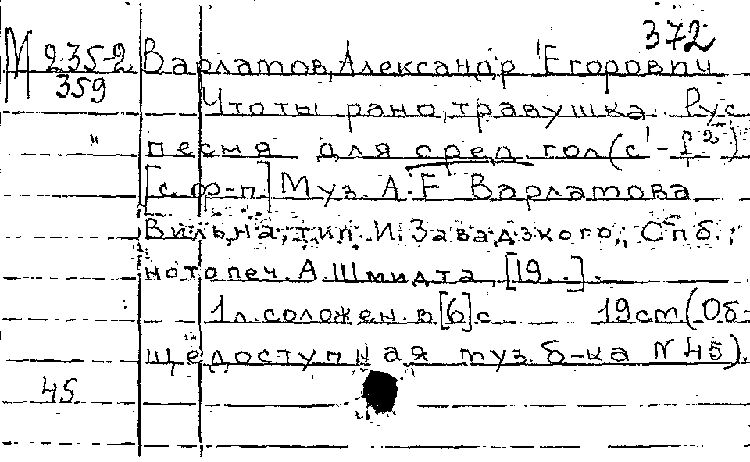 372
М 235-2 Варламов, Александр Егорович
359
Что ты рано, травушка. Рус.
" песня для сред. гол (c¹-f²)
[с ф-п.] Муз. А.Е Варламова
Вильна, тип. И. Завадзкого, Спб.,
нотопеч. А. Шмидта, [19..].
1 л. сложен. в [6] с 19 см (Об-
щедоступная муз. б-ка N 45).
45